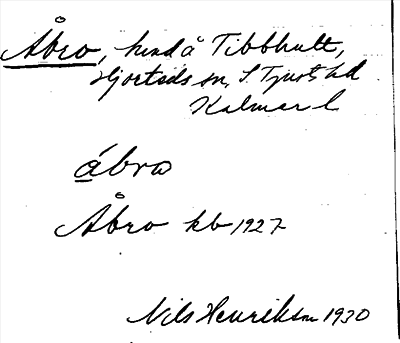 Åbro, hmd å Tibbhult,
Hjorteds sn, S. Tjusts hd
Kalmar l
åbrω
Åbro kb 1927
Nils Henrikson 1930